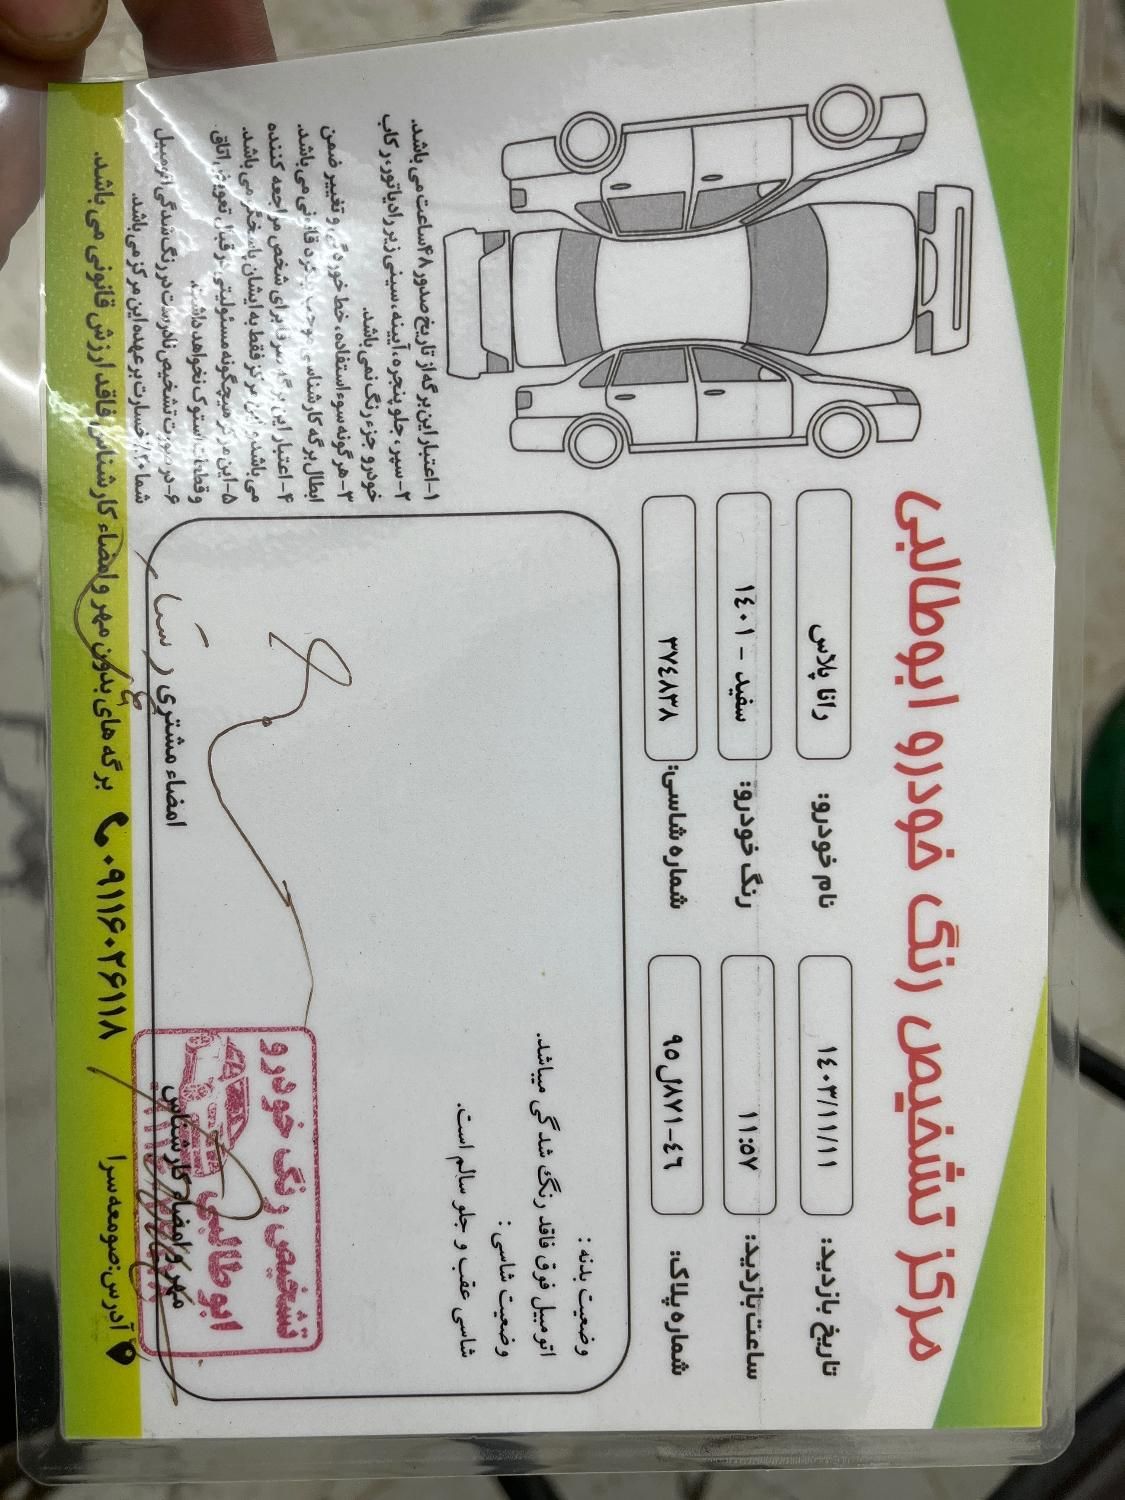 مرکز تشخیص رنگ خودرو ابوطالبی
تاریخ بازدید: ١٤٠٣/١١/١١
نام خودرو: رانا پلاس
ساعت بازدید: ١١:٥٧
رنگ خودرو: سفید - ١٤٠١
شماره پلاک: ٩٥ل٨٧١-٤٦
شماره شاسی: ٣٧٤٨٣٨
وضعیت بدنه :
اتومبیل فوق فاقد رنگ شدگی میباشد.
وضعیت شاسی :
شاسی عقب و جلو سالم است.
مهر و امضاء کارشناس
امضاء مشتری
تشخیص رنگ خودرو
ابوطالبی
۱- اعتبار این برگه از تاریخ صدور ۴۸ ساعت می باشد.
۲- سپر، جلو پنجره، آیینه، سینی زیر رادیاتور، رکاب
خودرو جزء رنگ نمی باشد.
۳- هرگونه سوء استفاده، خط خوردگی و تغییر ضمن
ابطال برگه کارشناسی موجب پیگرد قانونی می باشد.
۴- اعتبار این برگه صرفا برای شخص مراجعه کننده
می باشد و این مرکز فقط به ایشان پاسخگو می باشد.
۵- این مرکز هیچگونه مسئولیتی در قبال تعویض اتاق
و قطعات استوک نخواهد داشت.
۶- در صورت تشخیص نادرست در رنگ شدگی اتومبیل
شما خسارت بر عهده این مرکز می باشد.
آدرس: صومعه سرا
۰۹۱۱۶۰۲۶۱۱۸
برگه های بدون مهر و امضاء کارشناس فاقد ارزش قانونی می باشد.